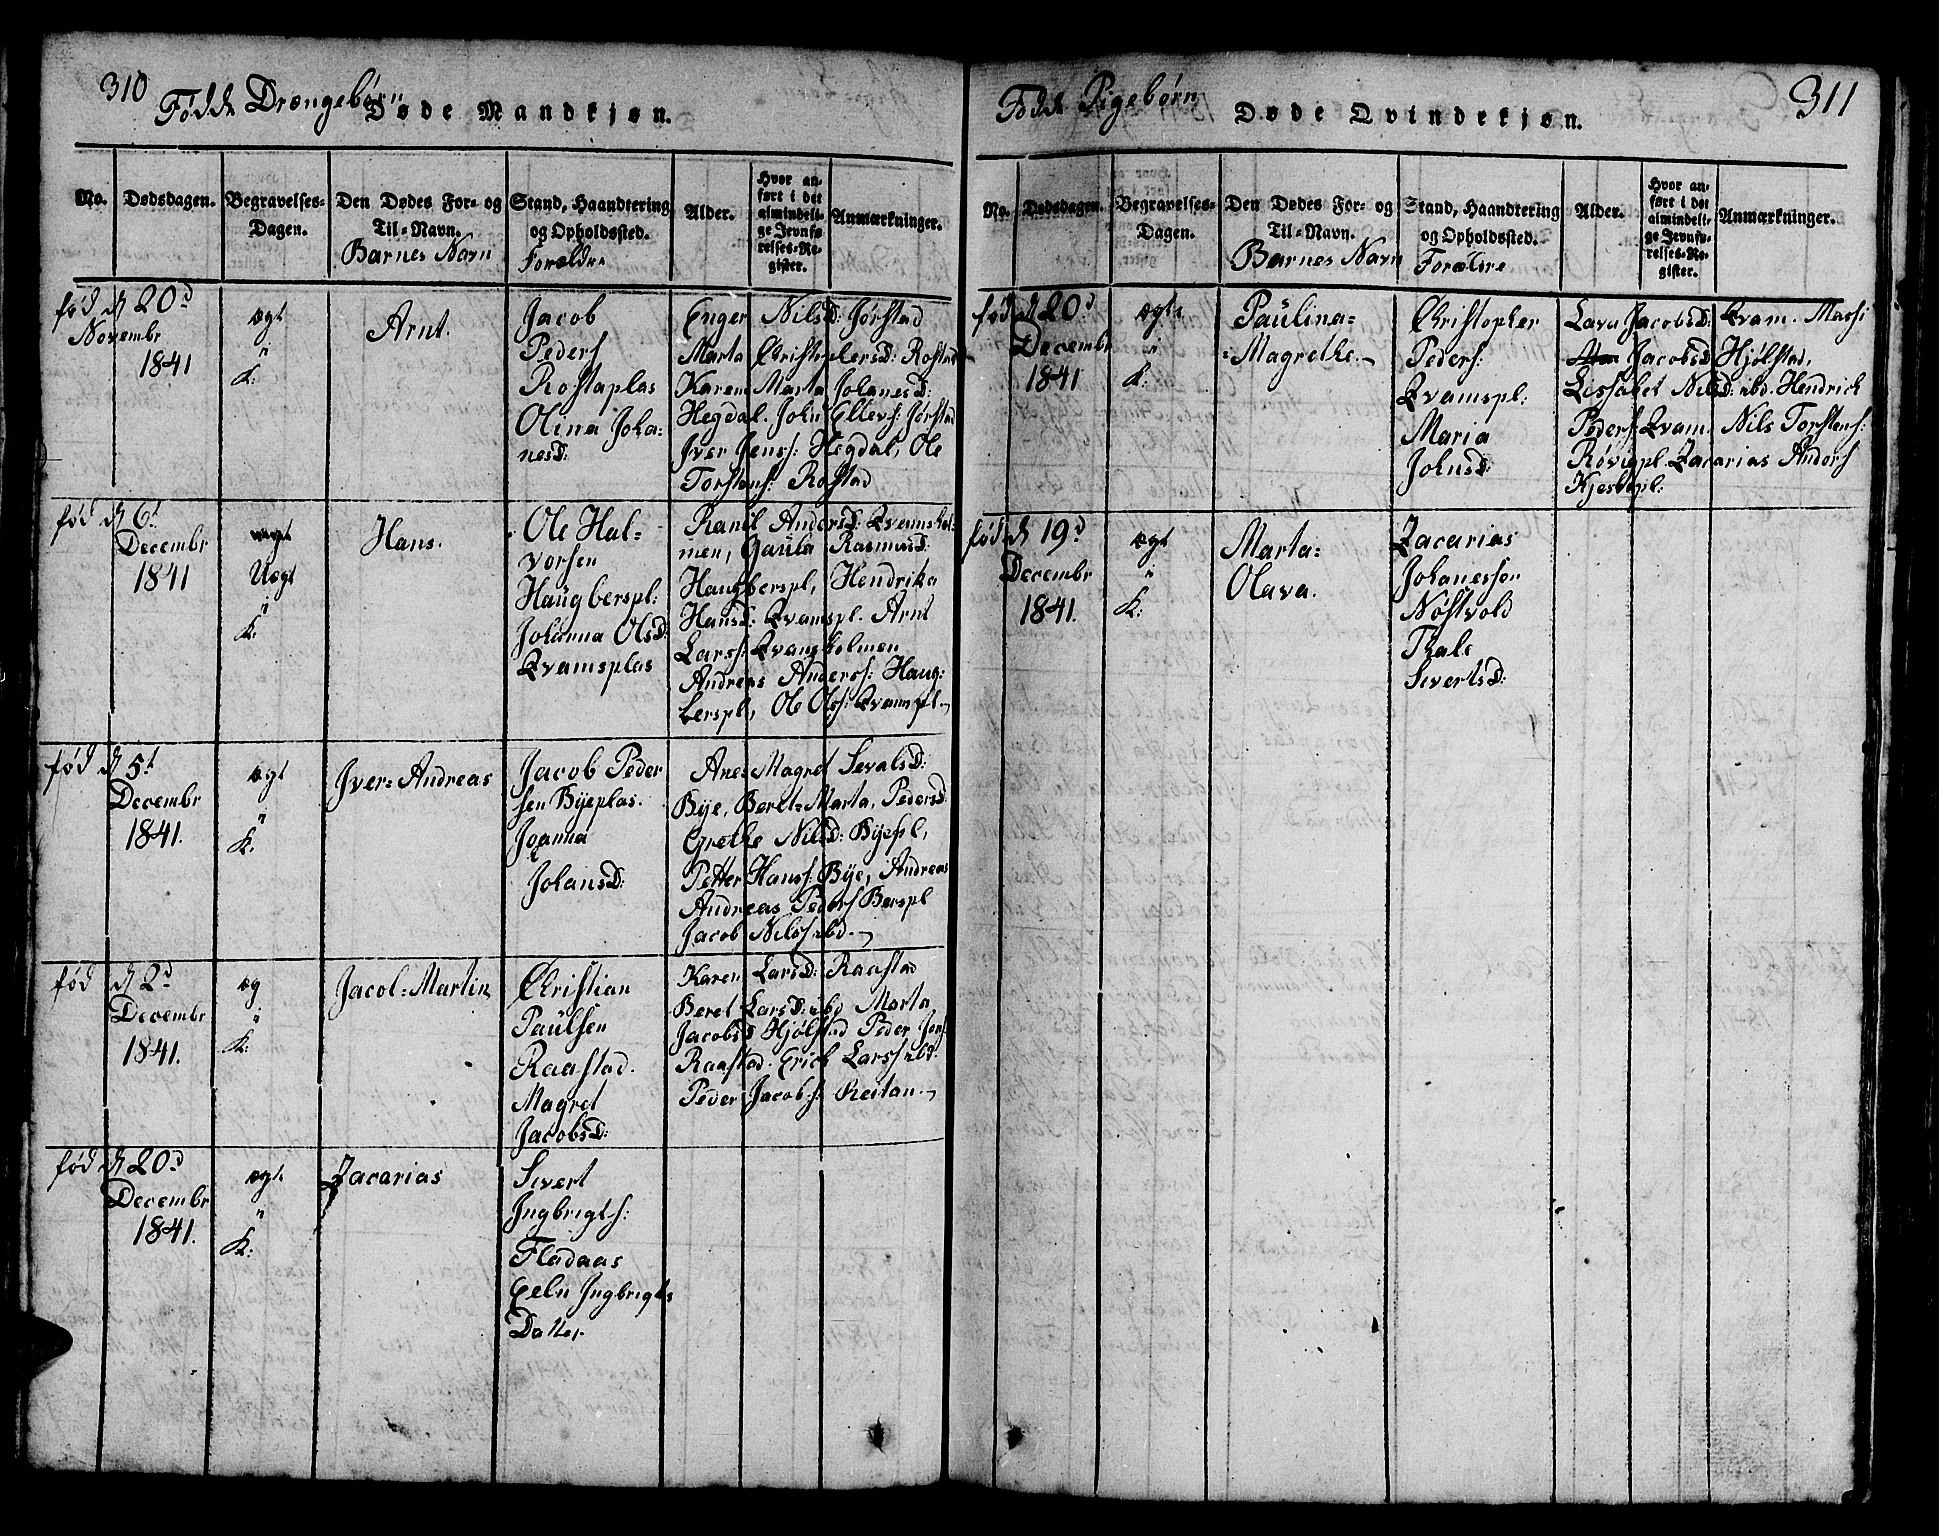 310
Fødde Drængebørn
Døde Mandkjøn.
No.
Dødsdagen.
Begravelses-
Dagen.
Den Dødes For- og
Til-Navn.
Barnes Navn
Stand, Haandtering
og Opholdssted.
Forældre
Alder.
Hvor an-
ført i det
almindeli-
ge Jevnfø-
relses-Re-
gister.
Anmærkninger.
fød d 20d
Novembr
1841
ægt
"
K:
Arnt.
Jacob
Peders
Rostaplas
Olina Joha-
nesd:
Enger Nilsd: Jørstad
Marta Christophersd: Rostad
Karem Marta Johanesd:
Hegdal. John Ellevs: Jørstad
Jver Jenss: Hegdal, Ole
Torstens: Rostad
fød d 6t
Decembr
1841
Uægt
"
K:
Hans.
Ole Hal-
vorsen
Haugberspl:
Johanna Olsd:
Qvamsplas
Ranil Andersd: Qvamshol-
men, Gaula Rasmusd:
Haugberspl, Hendrika
Hansd: Qvamspl. Arnt
Larss: Qvamsholmen
Andreas Anderss: Haug:
berspl, Ole Olss: Qvamspl.
fød d 5t
Decembr
1841.
ægt
"
K.
Jver= Andreas
Jacob Peder
sen Byeplas.
Joanna
Johansd:
Anes Magret Sevalsd:
Bye, Beret= Marta, Pedersd
Grethe Nilsd: Byespl,
Petter Hanss: Bye, Andreas
Andreas Peders Berspl
Jacob Nilss ibd.
fød d 2d
Decembr
1841.
æg
"
K:
Jacob= Martin
Christian
Paulsen
Raastad.
Magret
Jacobsd:
Karen Larsd: Raastad
Beret Larsd: ibd Marta
Jacobsd Hjølstad Peder Jers
Raastad. Erick Larss ibd.
Peder Jacobs: Reitan.
fød d 20d
Decembr
1841.
ægt
"
K:
Zacarias
Sivert
Ingbrigts:
Fladaas
Eeln Ingbrigts
Datter.
311
Fødde Pigebørn
Døde Qvindekjøn.
No.
Dødsdagen.
Begravelses-
Dagen.
Den Dødes For- og
Til-Navn.
Barnes Navn
Stand, Haandtering
og Opholdssted.
Forælire
Alder.
Hvor an-
ført i det
almindeli-
ge Jevnfø-
relses-Re-
gister.
Anmærkninger.
fød d 20d
Decembr
1841
ægt.
"
K:
Paulina=
=Magrethe.
Christopher
Peders:
Qvamspl:
Maria
Johnsd:
Lava Jacobsd: Qvam. Massi
Jacobsd Hjølstad,
Lissabet Nilsd: ibd. Hendrick
Peders: Qvam. Nils Torstens:
Røvigpl. Zacarias Anders
fød d 19d
Decembr
1841.
ægt
"
K:
Marta=
Olava.
Zacarias
Johanessen
Nøstvold
Thale
Sivertsd: